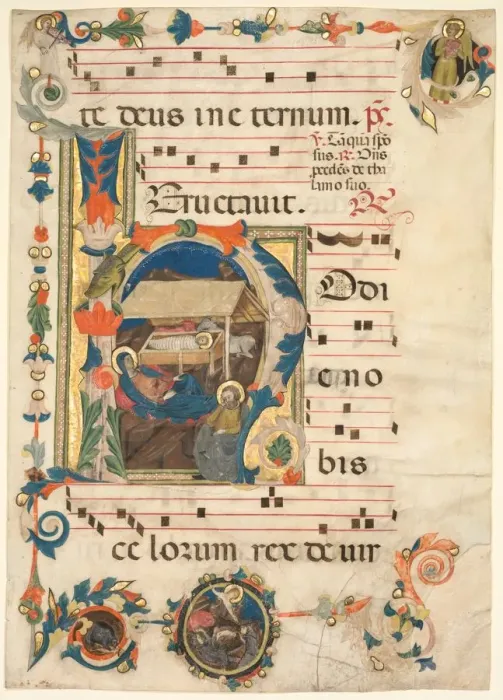 te deus in e ternum. ps̄.
℣. Tāquā spō
sus. ℟. Dn̄s
p̄cedēs de tha
lamo suo.
Eructauit. ℟
H Odi
e no
bis
ce lorum rex de uir